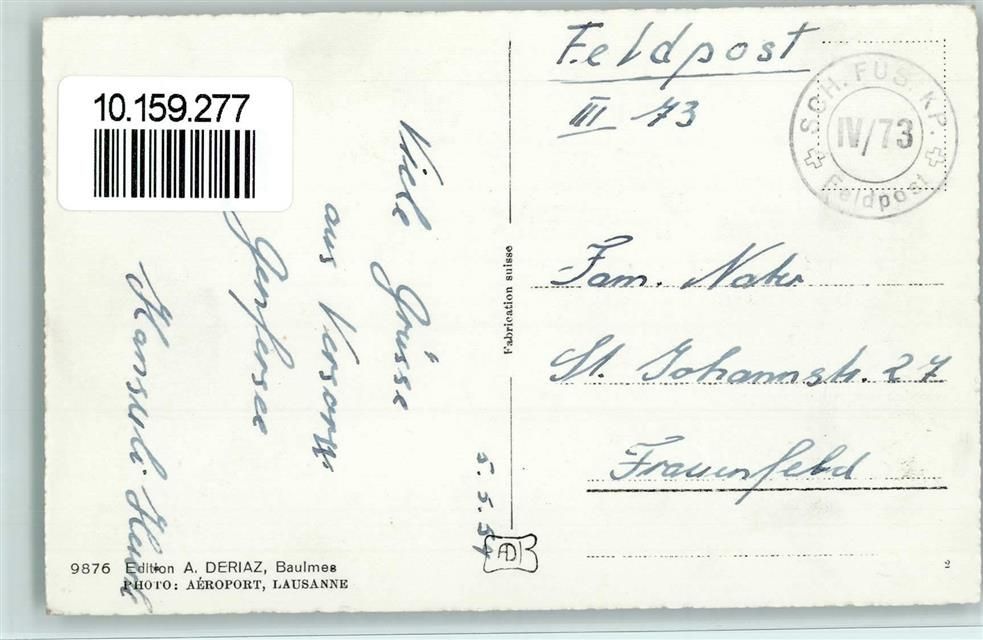 10.159.277
Feldpost
III 73
SCH. FÜS. KP.
IV/73
Feldpost
Viele Grüsse
aus
Genfersee
Hansuli
5. 5. 54
Fam. Nater
St. Johannstr. 27
Frauenfeld
Fabrication suisse
AD
9876 Edition A. DERIAZ, Baulmes
PHOTO: AÉROPORT, LAUSANNE
2